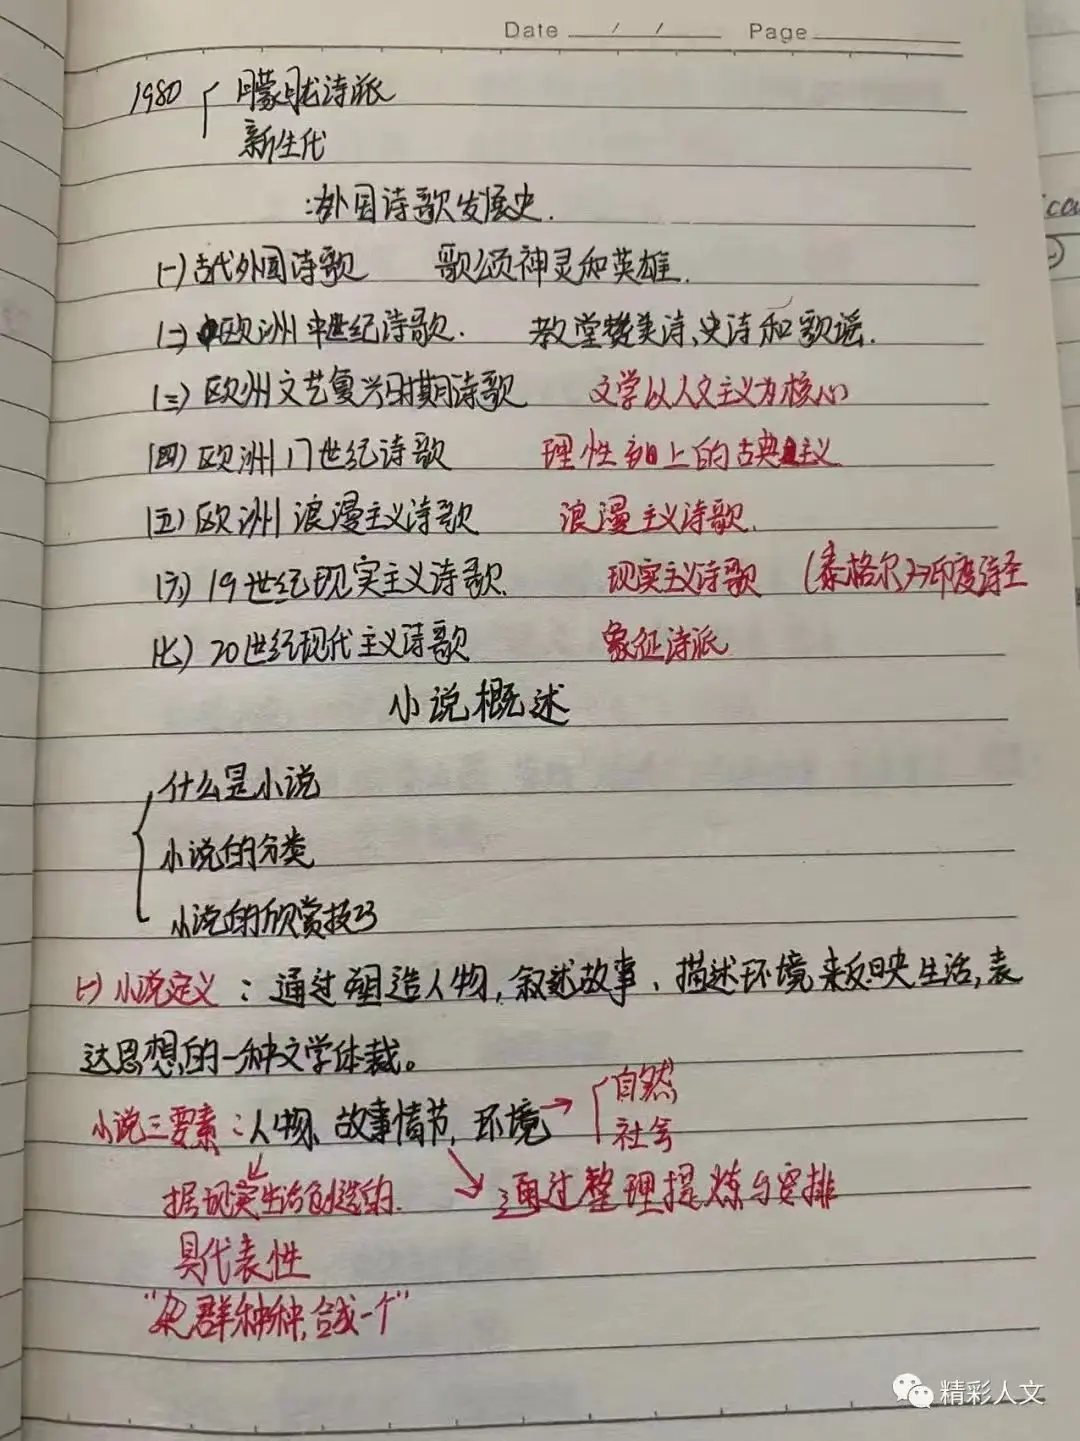 Date / / Page
1980 朦胧诗派
新生代
:外国诗歌发展史.
(一)古代外国诗歌 歌颂神灵和英雄.
(二)欧洲中世纪诗歌. 教堂赞美诗、史诗和歌谣.
(三)欧州文艺复兴时期诗歌 文学以人文主义为核心
(四)欧洲17世纪诗歌 理性至上的古典主义
(五)欧洲浪漫主义诗歌 浪漫主义诗歌.
(六)19世纪现实主义诗歌. 现实主义诗歌 (泰格尔)→印度诗圣
(七)20世纪现代主义诗歌 象征诗派
小说概述
什么是小说
小说的分类
小说的欣赏技巧
(一)小说定义:通过塑造人物,叙述故事、描述环境来反映生活,表
达思想的一种文学体裁。
小说三要素:人物、故事情节,环境→ 自然
社会
据现实生活创造的. 通过整理提炼与安排
具代表性
"杂群种种,合成一个"
精彩人文